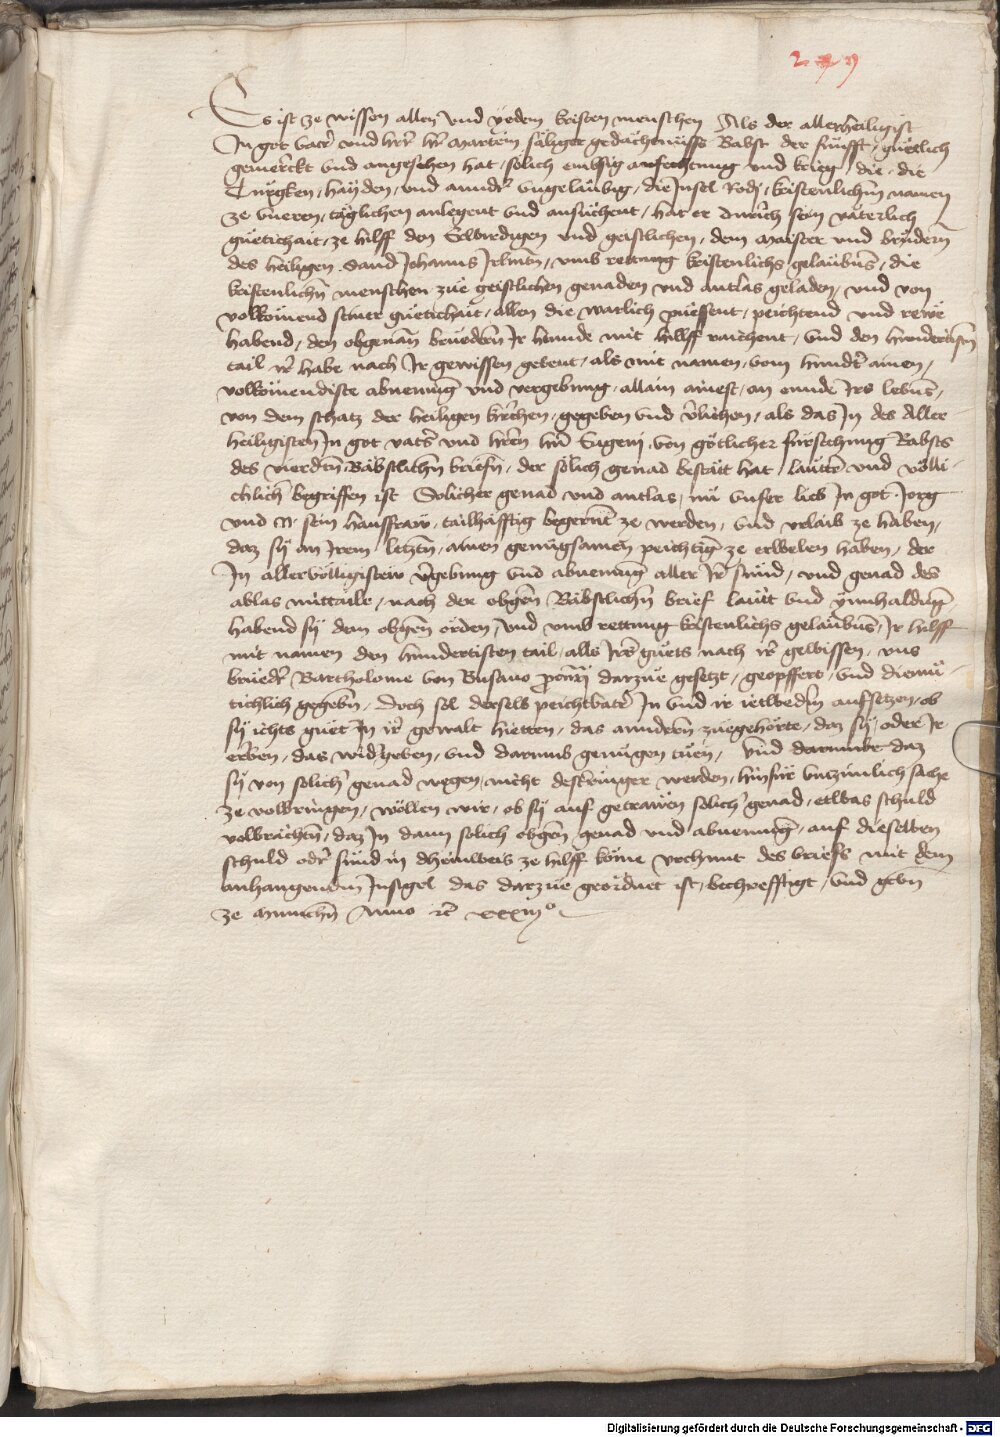 279
Es ist ze wissen allen vnd yedem kristen menschen Als der allerheiligist
In got vatr̄ vnd hr̄r hr̄ Martein säliger gedächtnüss Babst der fünfft, güetlich
gemerckt vnd angesehen hat, solich emssig anfechtung vnd krieg, die, die
Türgken, hayden, vnd annder vngelaubig, die Insel Rodi, kristenlichm̄ namen
ze vneren, täglichen anlegent vnd ansüchent, hat er durch sein väterlich
güetichait, ze hilff den Erwirdigen vnd geistlichen, dem maister vnd brüdern
des heiligen Sand Johanns Jrlm̄tn̄, vmb rettung kristenlichs gelaubn̄s, die
kristenlichn̄ menschen züe geistlichen genaden vnd antlas geladen, vnd von
volkōmend seiner güetichait, allen die warlich püessent, peichtend vnd rewe
habend, den obgenan̄ bruedern Ir hennde mit hilff raichent, vnd den hundertistn̄
tail ir̄ habe nach Ir gewissen gebent, als mit namen, vom hundt̄ ainen,
volkōmendiste abnemūg vnd vergebung, allain ainest, an ennde Irs lebns̄,
von dem schatz der heiligen kirchen, gegeben vnd v̄lichen, als das In des Aller
heiligisten In got vatrs̄ vnd herrn̄ hr̄n Eugenj, von götlicher fürsechung Babsts
des vierdtn̄, Bäbstlichn̄ briefn̄, der sölich genad bestätt hat, lautter vnd völli-
chlich begriffen ist Solicher genad vnd antlas, nū vnser lieb In got Jorg
vnd N sein hawsfraw, tailhäfftig begernt ze werden, vnd vrlaub ze haben,
daz sy an Irem letztn̄, ainen genügsamen peichtiḡ ze erwelen haben, der
In allervölligisteiv v̄gebung vnd abnemūg aller Ir̄ sünd, vnd genad des
ablas mittaile, nach der obgn̄ Bäbstlichn̄ brief lautt vnd ynnhaldūg
habend sy dem obgen̄ orden, vnd vmb rettung kristenlichs gelaubn̄s, Ir hilff
mit namen den hundertisten tail, alls Irs̄ güets nach ir̄ gewissen, vns
brüedr̄ Bartholome von Busano darzue gesetzt, geopffert, vnd diemü-
tichlich gegebn̄, Doch sol derselb peichtvatr̄ In vnd ir ietwedm̄ aufsetzen, ob
sy ichts güet In ir̄ gewalt hietten, das anndern zuegehörte, daz sy, oder Ir
erben, das widgeben, vnd darumb genügen tüen, vnd darumbe daz
sy von solich̄ genad wegen, nicht destringer werden, hinfür vnzimlich sache
ze volbringen, wöllen wir, ob sy auf getrawen solich̄ genad, etwas schuld
volbrächtn̄, daz In dann solich obgen̄ genad vnd abnemūg, auf dieselben
schuld odr̄ sünd in dhainweis ze hilff köme vrchunt des briefs mit dem
anhangendem Insigel das darzue geordnet ist, bechrefftigt, vnd gebn̄
ze Munichn̄ Anno rc̄ xxxiijº
Digitalisierung gefördert durch die Deutsche Forschungsgemeinschaft - DFG